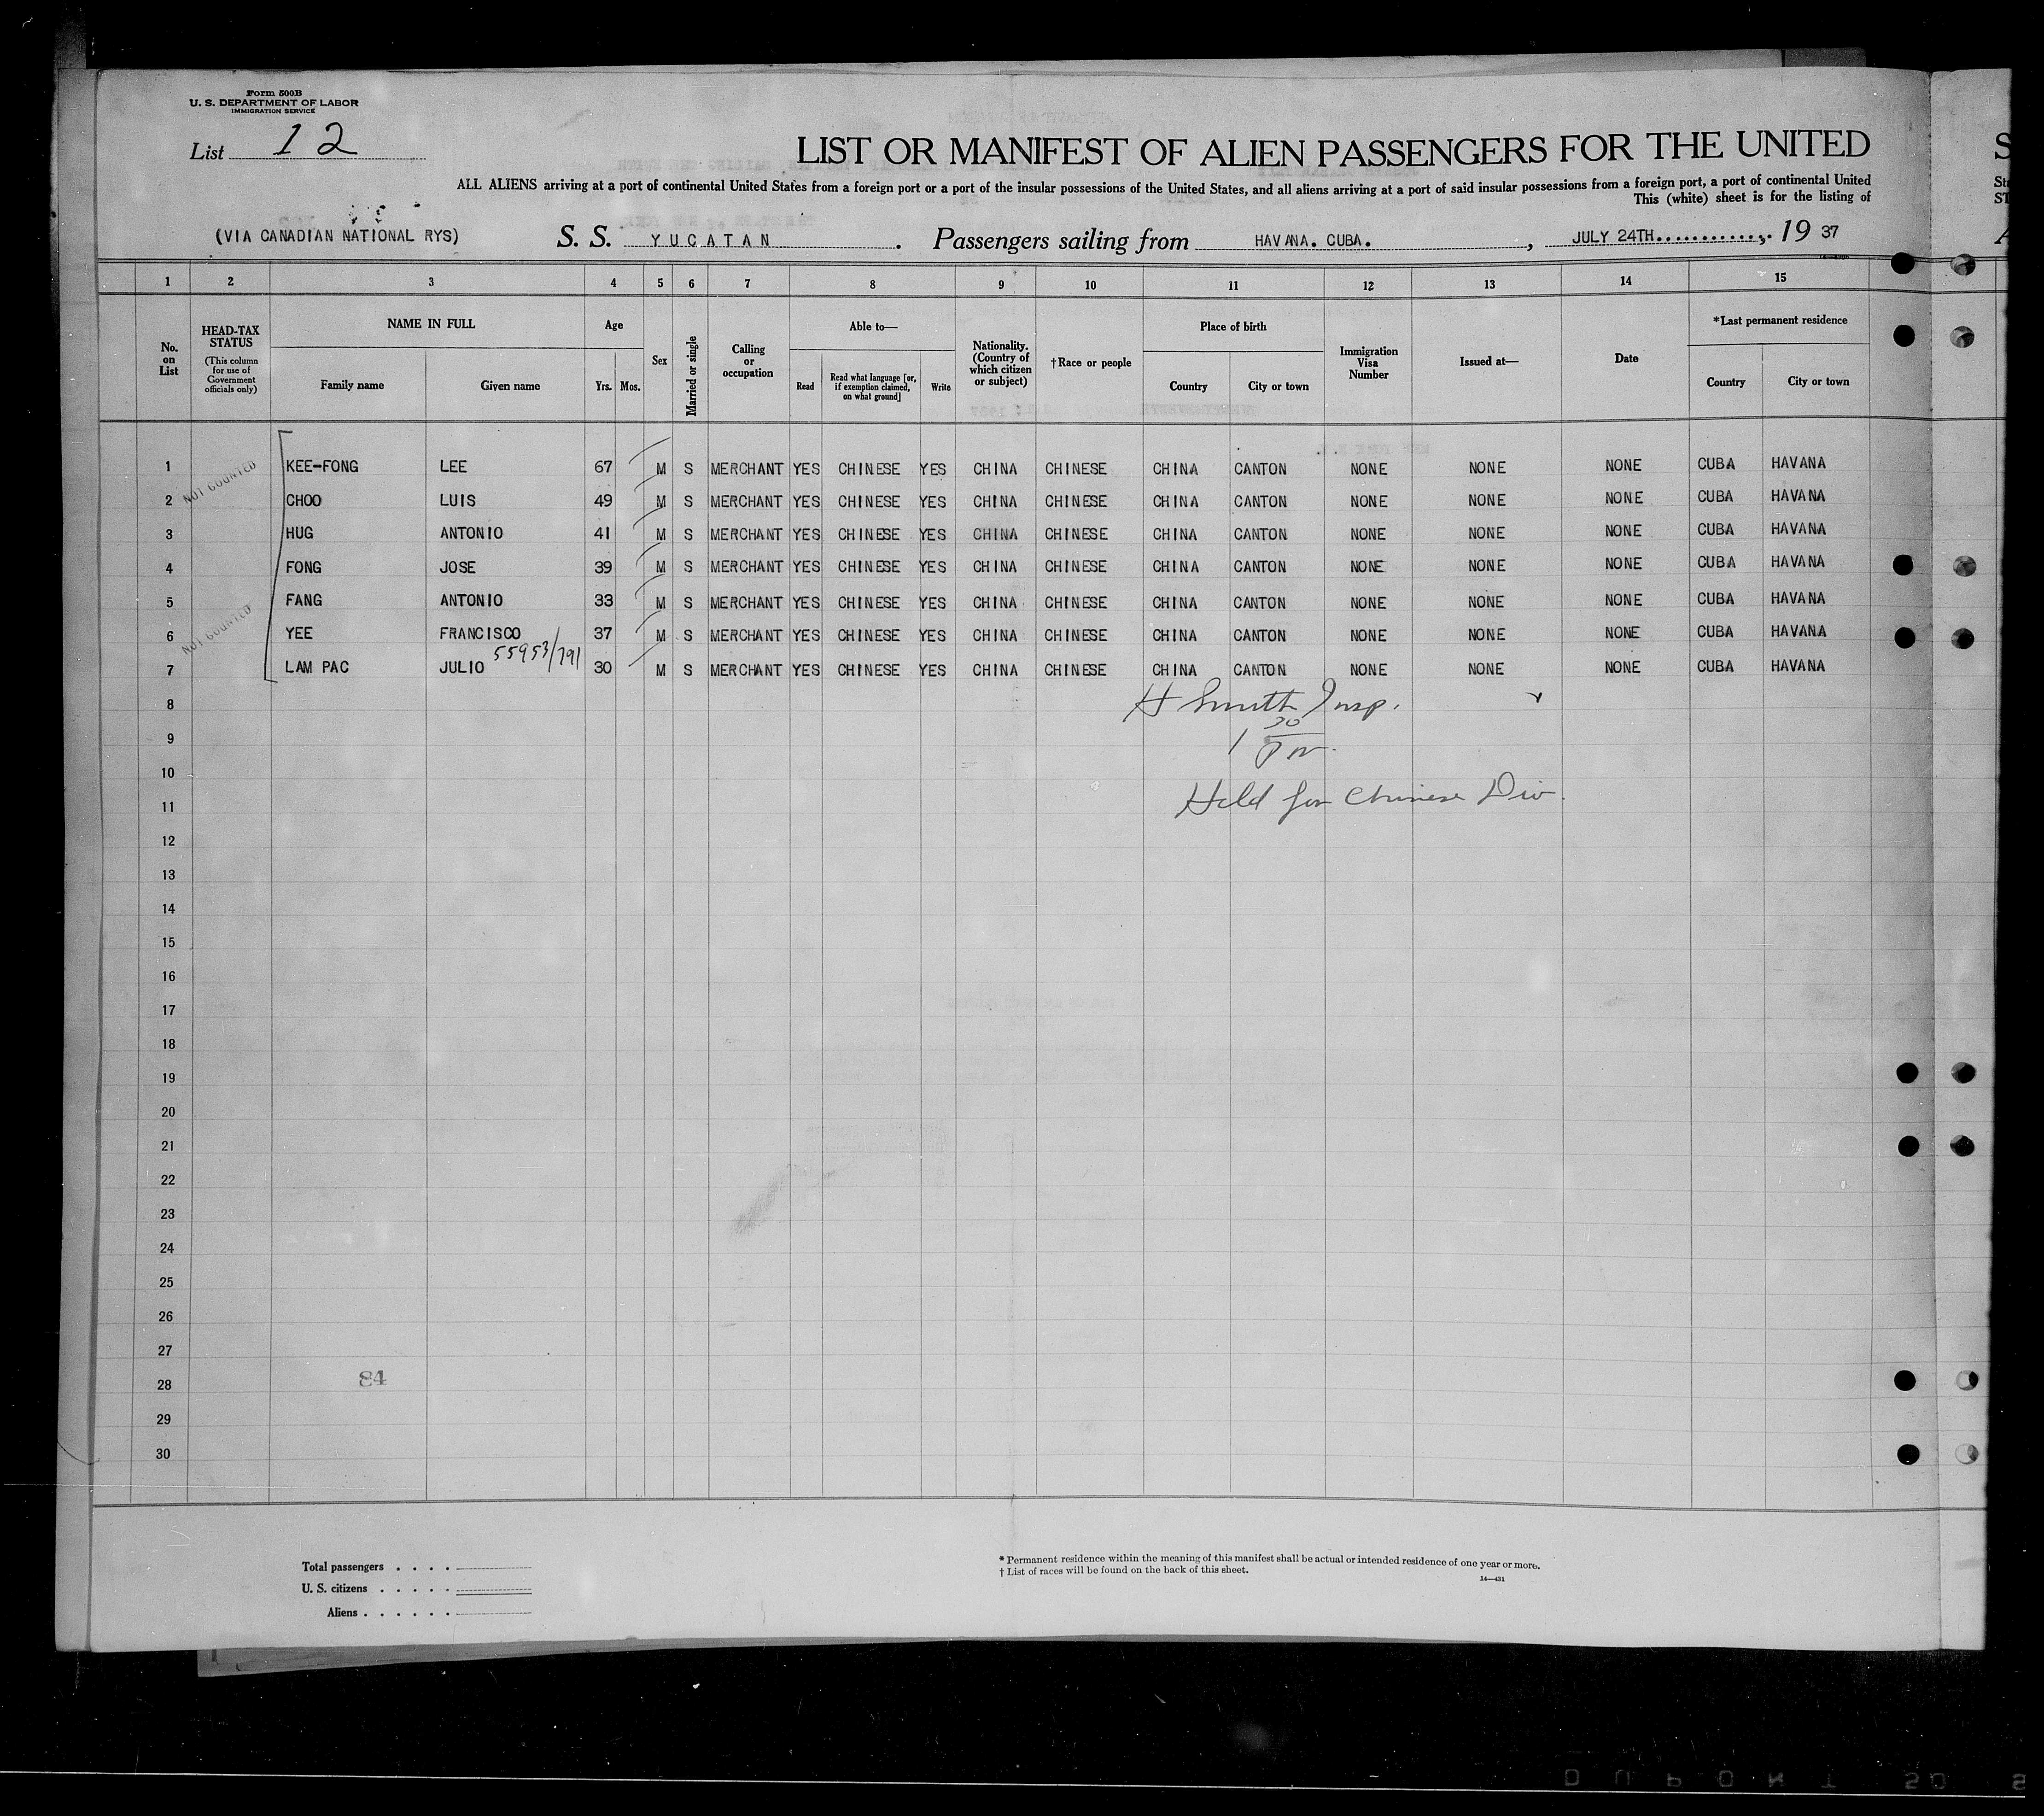 Form 500B
U. S. DEPARTMENT OF LABOR
IMMIGRATION SERVICE
List 12
LIST OR MANIFEST OF ALIEN PASSENGERS FOR THE UNITED
ALL ALIENS arriving at a port of continental United States from a foreign port or a port of the insular possessions of the United States, and all aliens arriving at a port of said insular possessions from a foreign port, a port of continental United
This (white) sheet is for the listing of
(VIA CANADIAN NATIONAL RYS) S. S. YUCATAN. Passengers sailing from HAVANA. CUBA., JULY 24TH............, 19 37
1 2 3 4 5 6 7 8 9 10 11 12 13 14 15
No. on List
HEAD-TAX STATUS (This column for use of Government officials only)
NAME IN FULL
Family name Given name
Age
Yrs. Mos.
Sex
Married or single
Calling or occupation
Able to—
Read
Read what language [or, if exemption claimed, on what ground]
Write
Nationality. (Country of which citizen or subject)
†Race or people
Place of birth
Country City or town
Immigration Visa Number
Issued at—
Date
*Last permanent residence
Country City or town
NOT COUNTED
1 KEE-FONG LEE 67 M S MERCHANT YES CHINESE YES CHINA CHINESE CHINA CANTON NONE NONE NONE CUBA HAVANA
2 CHOO LUIS 49 M S MERCHANT YES CHINESE YES CHINA CHINESE CHINA CANTON NONE NONE NONE CUBA HAVANA
3 HUG ANTONIO 41 M S MERCHANT YES CHINESE YES CHINA CHINESE CHINA CANTON NONE NONE NONE CUBA HAVANA
4 FONG JOSE 39 M S MERCHANT YES CHINESE YES CHINA CHINESE CHINA CANTON NONE NONE NONE CUBA HAVANA
5 FANG ANTONIO 33 M S MERCHANT YES CHINESE YES CHINA CHINESE CHINA CANTON NONE NONE NONE CUBA HAVANA
NOT COUNTED
6 YEE FRANCISCO 37 M S MERCHANT YES CHINESE YES CHINA CHINESE CHINA CANTON NONE NONE NONE CUBA HAVANA
55953/791
7 LAM PAC JULIO 30 M S MERCHANT YES CHINESE YES CHINA CHINESE CHINA CANTON NONE NONE NONE CUBA HAVANA
8 H Smith Insp.
9 1 30 PM.
10
11 Held for Chinese Div.
12
13
14
15
16
17
18
19
20
21
22
23
24
25
26
27
28 84
29
30
Total passengers . . . .
U. S. citizens . . . . .
Aliens . . . . . .
* Permanent residence within the meaning of this manifest shall be actual or intended residence of one year or more.
† List of races will be found on the back of this sheet.
14—431
DUPONT